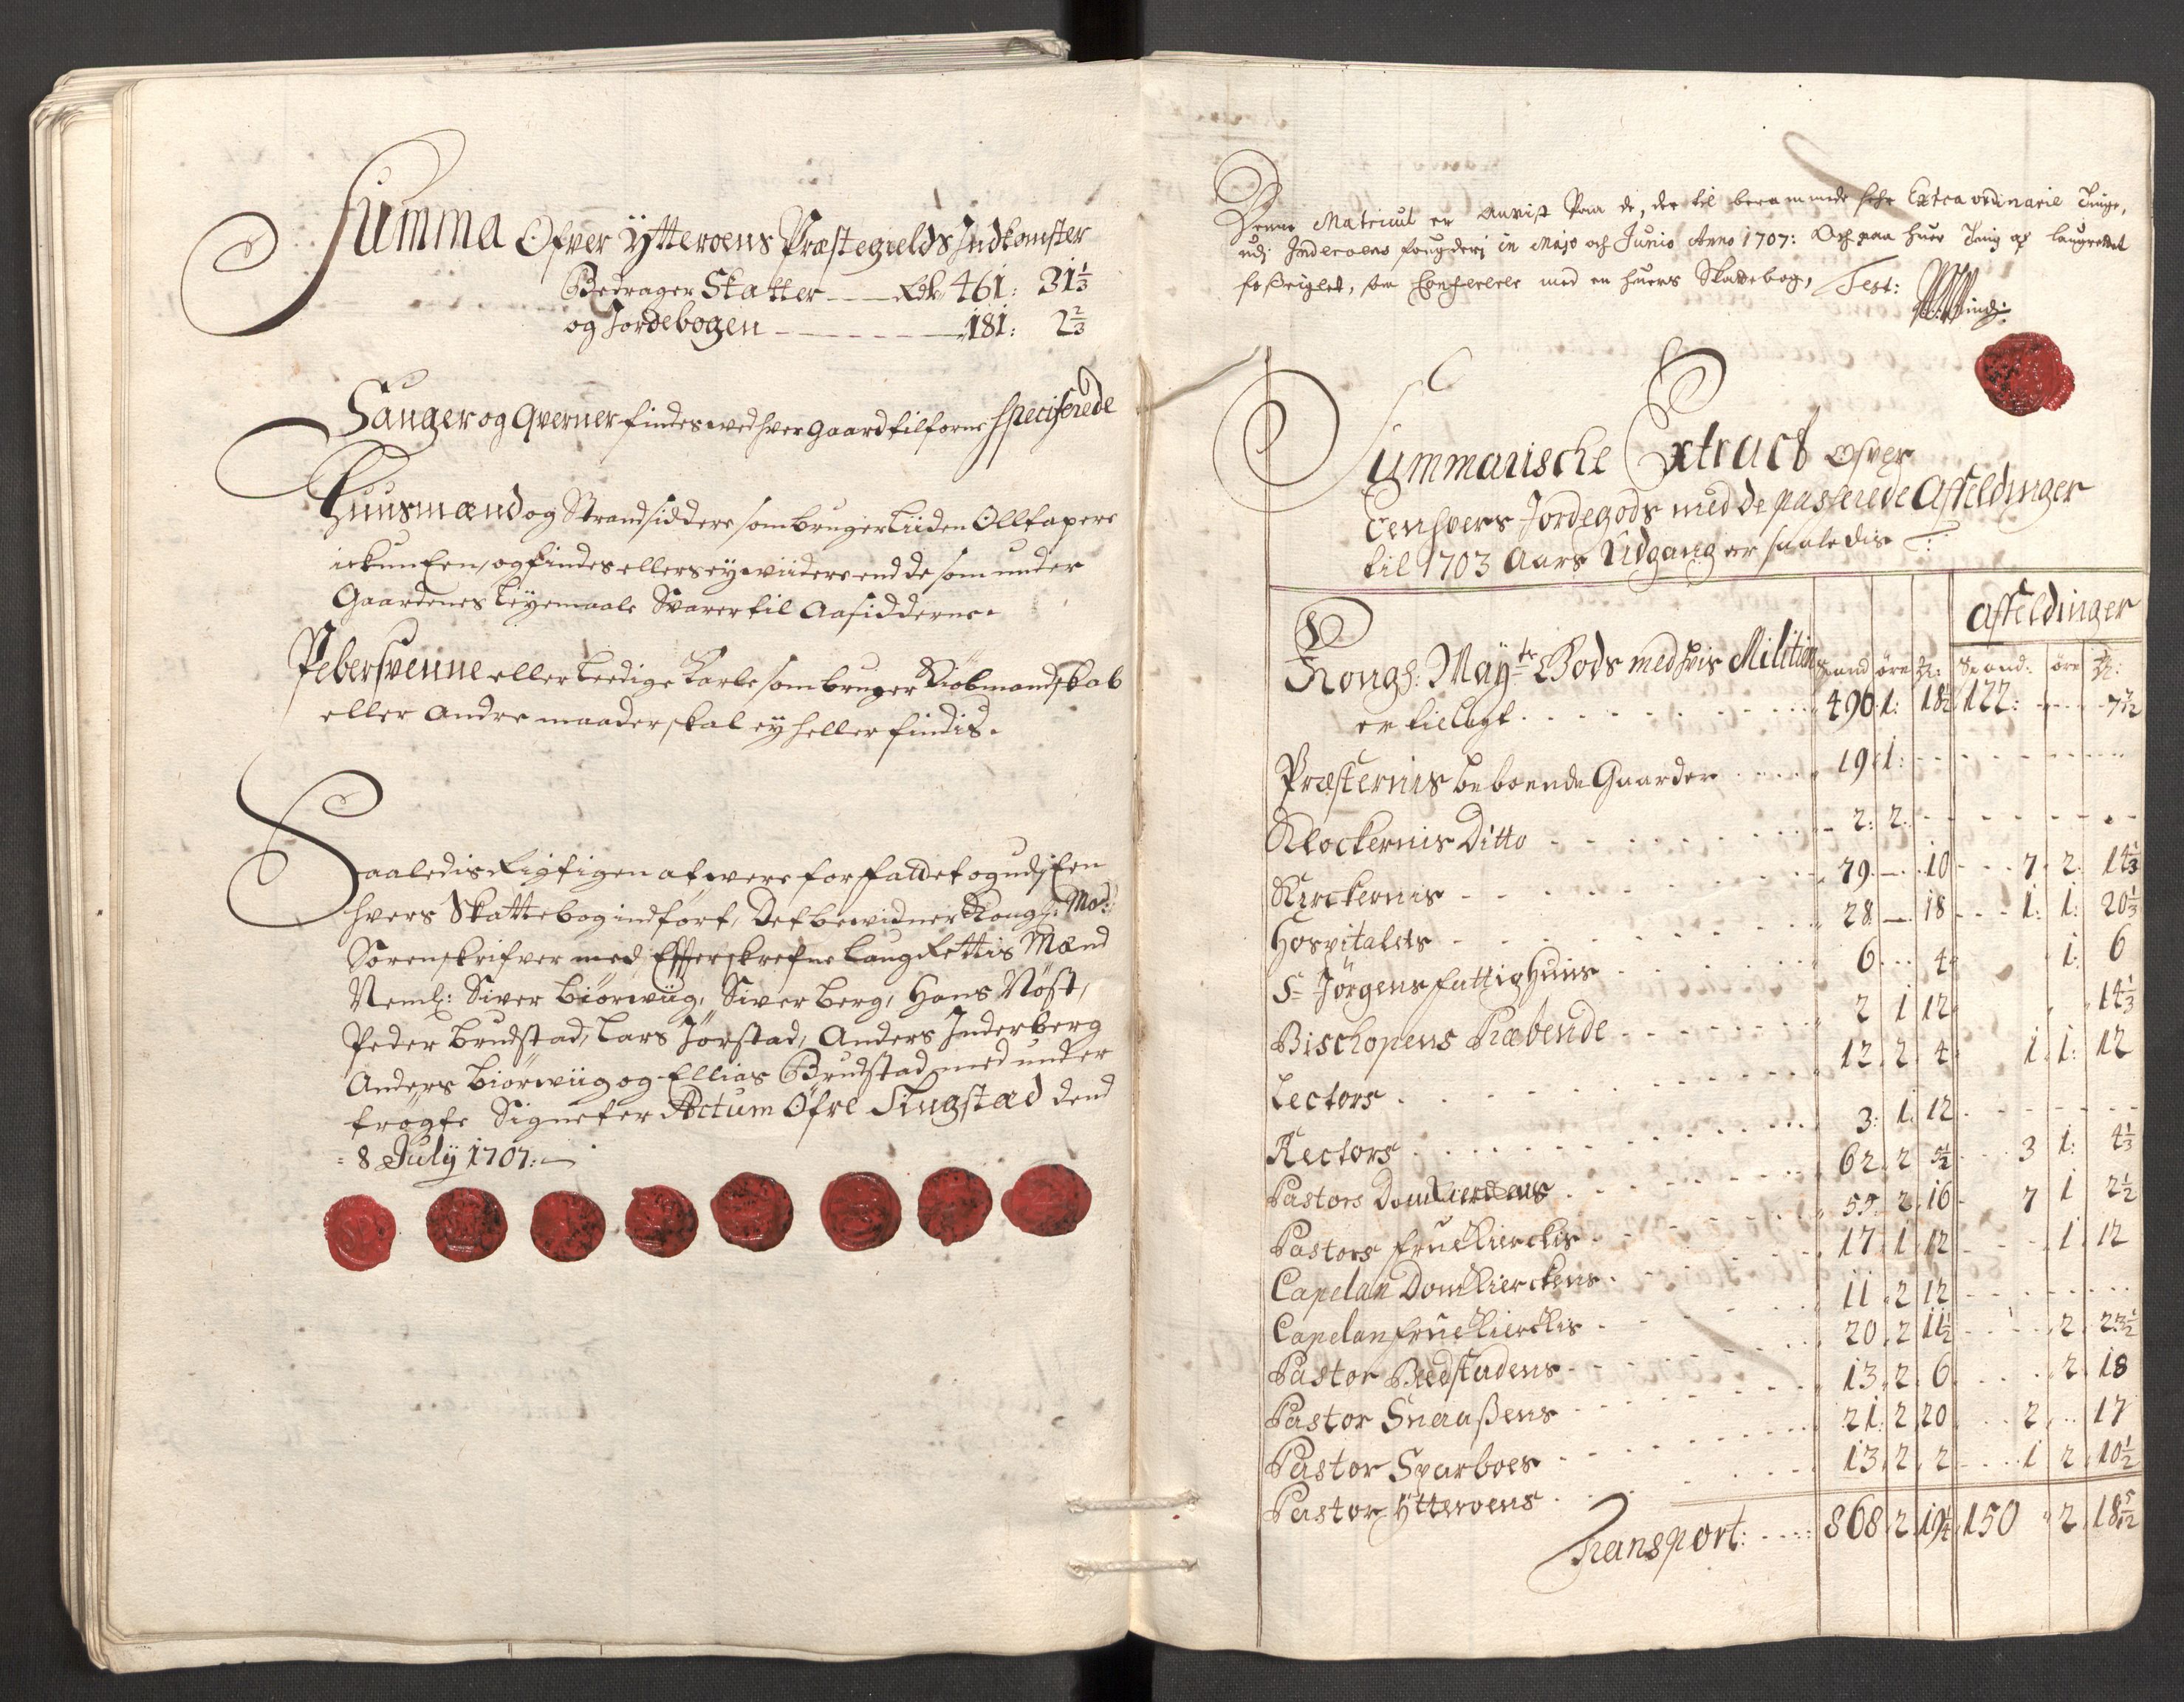 Summa Ofver Ytteroens Præstegields Indkomster
Bedrager Skatter — Rdr 461: 31 1/3
og Jordebogen — 181: 2 2/3
Sauger og Qverner findes ved hver gaard tilforne Specificerede
Huusmænd og Strandsiddere som bruger liiden
ickun Een, og findes ellers ey viidere end de som under
Gaardenes Leyemaale Svarer til Aasidderne.
Pebersvenne eller Leedige Karle som bruger Kiøbmandskab
eller Andre maader skal ey heller findis.
Saaledis Rigtigen at være forfattet og udj Een
hvers Skattebog indført, Det bevidner Kongs: May:
Sorenskrifver med Efterskrefne Laug Rettis Mænd
Neml: Siver Biørwiig, Siver Berg, Hans Nøst,
Peder Brudstad, Lars Jørstad, Anders Inderberg
Anders Biørwiig og Ellias Brudstad med under
trøgte Signeter Actum Øfre Tingstad dend
8 July 1707:
Denne Matricul er anvist Paa de, der til berammede Extra ordinarie Tinge,
udj Inderoens fougderj in Majo och Junio Anno 1707: Och paa huer Ting af laugrettet
forseiglet, saa med en huers Skattebog, Test:
Summarische Extract Ofver
Eenhvers Jordegods med de passerede Affeldinger
til 1703 Aars Udgang er saaledis
Affeldinger
Kongs: Mayts Gods med hvis Militien Spand øre Spand: øre
er tillagt 490 1: 18 1/2 122: 7 7/12
Præsternis beboende Gaarder 19 1:
Klockernis Ditto 2: 2:
Kirckernis 79 — 10 7 2 14 1/3
Hospitalets 28 — 18 1: 1: 20 1/3
St Jörgens fattig Huus 6 4 1: 6
Bischopens Præbende 2 1 12 14 1/3
Lectors 12 2 4 1 1: 12
Rectors 3: 1 12
Pastors Domkierckens 62 2 5/2 3 1: 4 1/3
Pastors Frue Kierckis 55 2 16 7 1 2 1/2
Capelan Domkierckens 17 1 12 1 12
Capelan Frue Kierckis 11 2 12
Pastor Beedstadens 20 2 11 1/2 2 23 1/2
Pastor Snaaßens 13 2 6 2 18
Pastor Sparboes 21 2 20 2 17
Pastor Ytteroens 13 2 2 1 2 10 1/2
Transport: 868 2 19 1/4 150 2 18 5/12